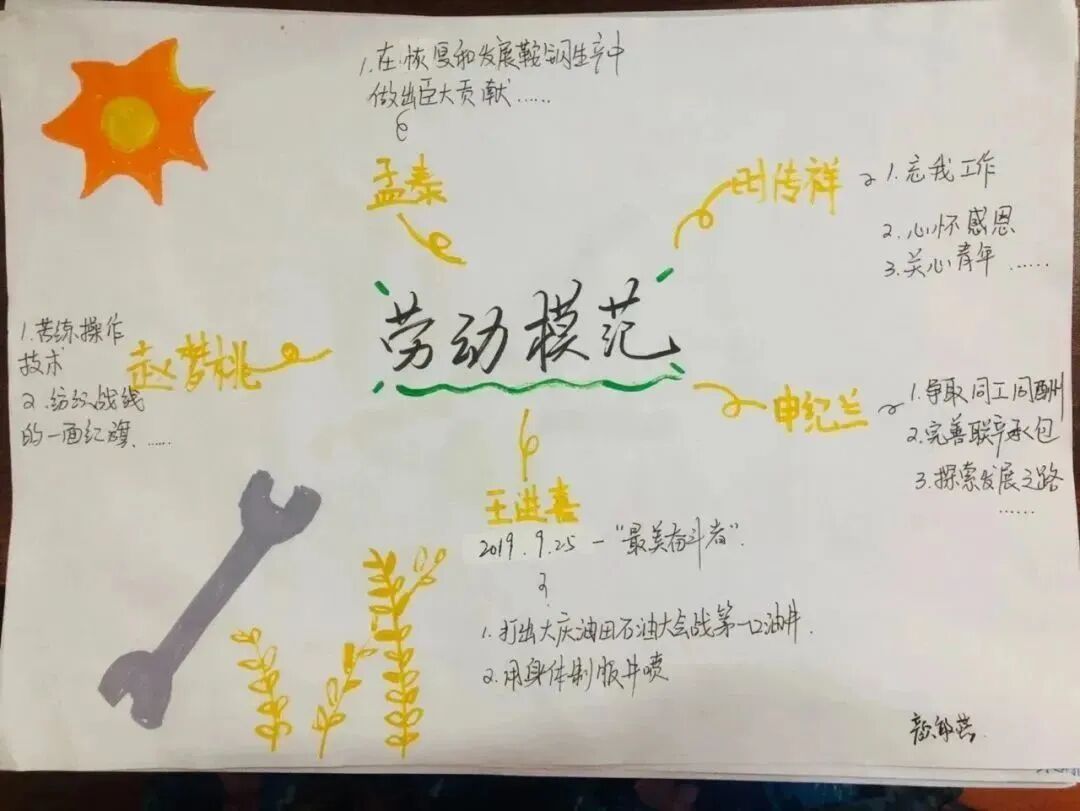 1.在恢复和发展鞍钢生产中
做出巨大贡献……
孟泰
时传祥
1.忘我工作
2.心怀感恩
3.关心青年……
劳动模范
赵梦桃
1.苦练操作
技术
2.纺织战线
的一面红旗……
申纪兰
1.争取同工同酬
2.完善联产承包
3.探索发展之路
……
王进喜
2019.9.25-"最美奋斗者".
1.打出大庆油田石油大会战第一口油井.
2.用身体制服井喷